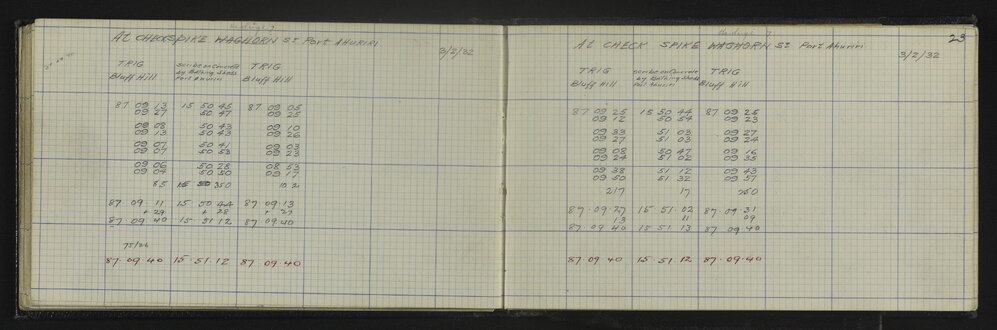 At CHECK SPIKE WAGHORN St Port AHURIRI
3/2/32
TRIG scribe on Concrete TRIG
Bluff Hill by Bathing Sheds Bluff Hill
Port Ahuriri
87 09 13 15 50 45 87 09 05
09 27 50 47 09 25
09 08 50 43 09 10
09 13 50 43 09 26
09 07 50 41 09 03
09 07 50 53 09 23
09 06 50 28 08 53
09 04 50 50 09 17
85 15 50 350 102
87 09 11 15 50 44 87 09.13
+ 29 + 28 + 27
87.09.40 15.51.12 87.09.40
75/26
87.09.40 15.51.12 87.09.40
23
At CHECK SPIKE WAGHORN St Port Ahuriri
3/2/32
TRIG scribe on Concrete TRIG
Bluff Hill by Bathing Sheds Bluff Hill
Port Ahuriri
87 09 25 15 50 44 87 09 25
09 12 50 54 09 23
09 33 51 03 09 27
09 27 51 03 09 24
09 08 50 47 09 16
09 24 51 02 09 35
09 38 51 12 09 43
09 50 51 32 09 57
217 17 250
87.09.27 15.51.02 87.09.31
13 11 09
87.09.40 15.51.13 87.09.40
87.09.40 15.51.12 87.09.40